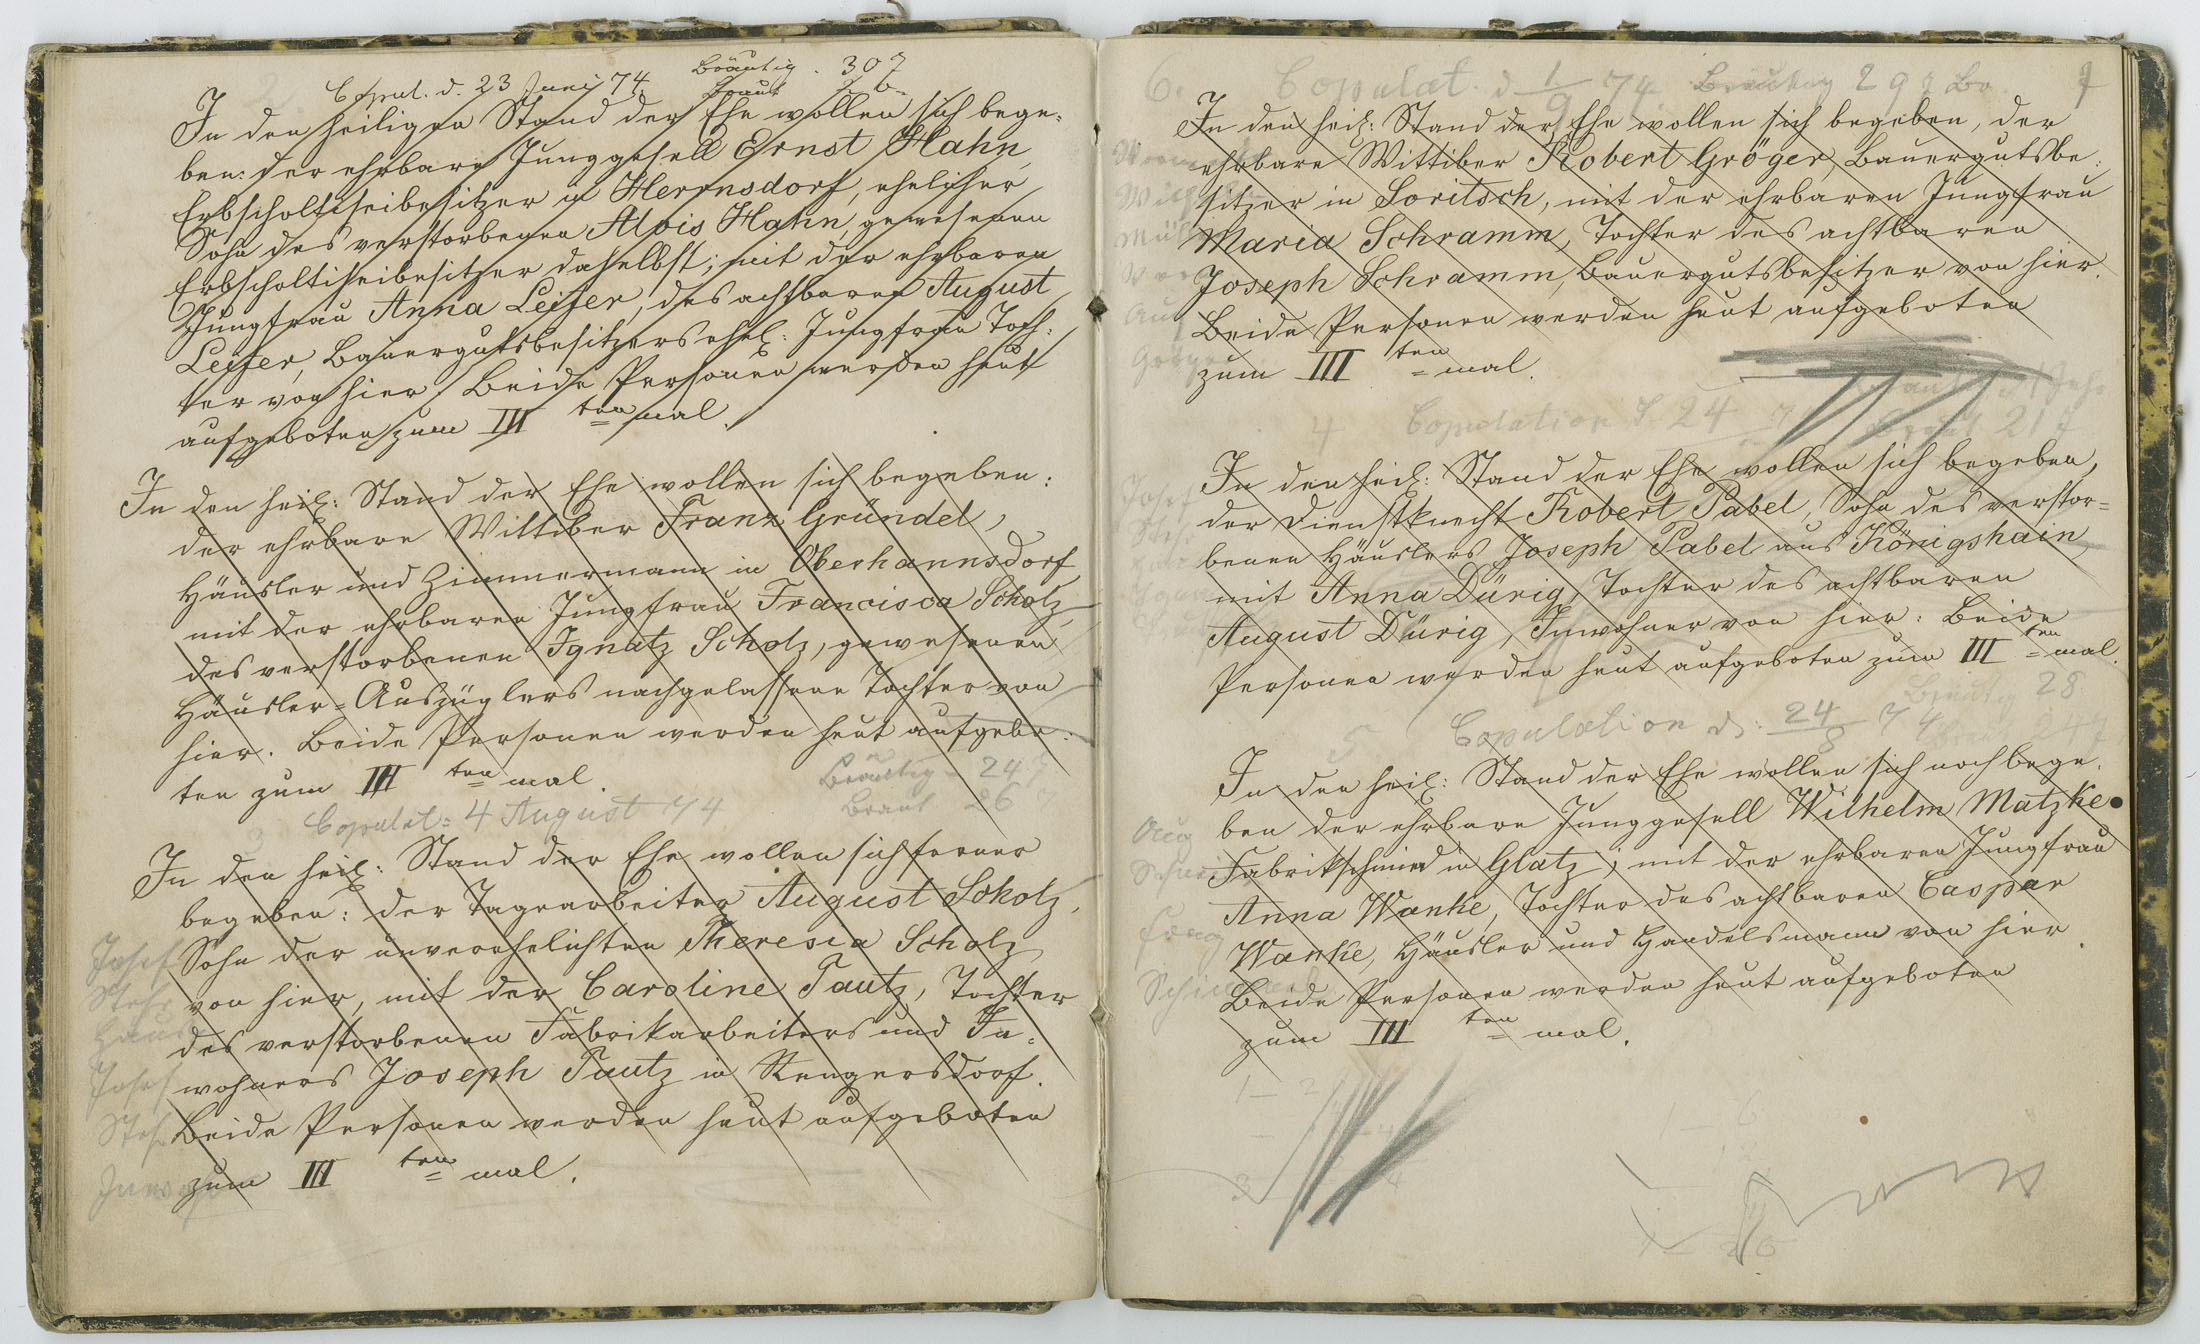 Copul. d. 23 Juni 74. Bräutig. 30 J
Braut
In den heiligen Stand der Ehe wollen sich bege-
ben: der ehrbare Junggesell Ernst Hahn,
Erbscholtiseibesitzer in Herrnsdorf, ehelicher
Sohn des verstorbenen Alois Hahn, gewesenen
Erbscholtiseibesitzer daselbst; mit der ehrbaren
Jungfrau Anna Leifer, des achtbaren August
Leifer, Bauergutsbesitzers ehel: Jungfrau Toch-
ter von hier. Beide Personen werden heut
aufgeboten zum III ten mal.
In den heil: Stand der Ehe wollen sich begeben:
der ehrbare Wittiber Franz Gründel,
Häusler und Zimmermann in Oberhannsdorf,
mit der ehrbaren Jungfrau Francisca Scholz,
des verstorbenen Ignatz Scholz, gewesenen
Häusler-Auszüglers nachgelassene Tochter von
hier. Beide Personen werden heut aufgebo-
ten zum III ten mal.
Bräutig 24 J
Copulat: 4 August 74 Braut 26 J
In den heil: Stand der Ehe wollen sich ferner
begeben: der Tagearbeiter August Scholz,
Sohn der unverehelichten Theresia Scholz
von hier, mit der Caroline Tautz, Tochter
des verstorbenen Fabrikarbeiters und In-
wohners Joseph Tautz in Rengersdorf.
Beide Personen werden heut aufgeboten
zum III ten mal.
Josef
Stehr
Josef
Steh
6. Copulat. d 1/9 74. Bräutig 29 J Br.
In den heil: Stand der Ehe wollen sich begeben, der
ehrbare Wittiber Robert Gröger, Bauergutsbe-
sitzer in Soritsch, mit der ehrbaren Jungfrau
Maria Schramm, Tochter des achtbaren
Joseph Schramm, Bauergutsbesitzer von hier.
Beide Personen werden heut aufgeboten
zum III ten mal.
4 Copulation d 24 21 J
In den heil: Stand der Ehe wollen sich begeben,
der Dienstknecht Robert Pabel, Sohn des verstor-
benen Häuslers Joseph Pabel aus Königshain,
mit Anna Dürig, Tochter des achtbaren
August Dürig, Inwohner von hier. Beide
Personen werden heut aufgeboten zum III ten mal.
Bräutig 28
5 Copulation d. 24/8 74 Braut 24 J
In den heil: Stand der Ehe wollen sich noch bege-
ben der ehrbare Junggesell Wilhelm Matzke
Fabrikschmied in Glatz; mit der ehrbaren Jungfrau
Anna Wanke, Tochter des achtbaren Caspar
Wanke, Häusler und Handelsmann von hier.
Beide Personen werden heut aufgeboten
zum III ten mal.
Aug